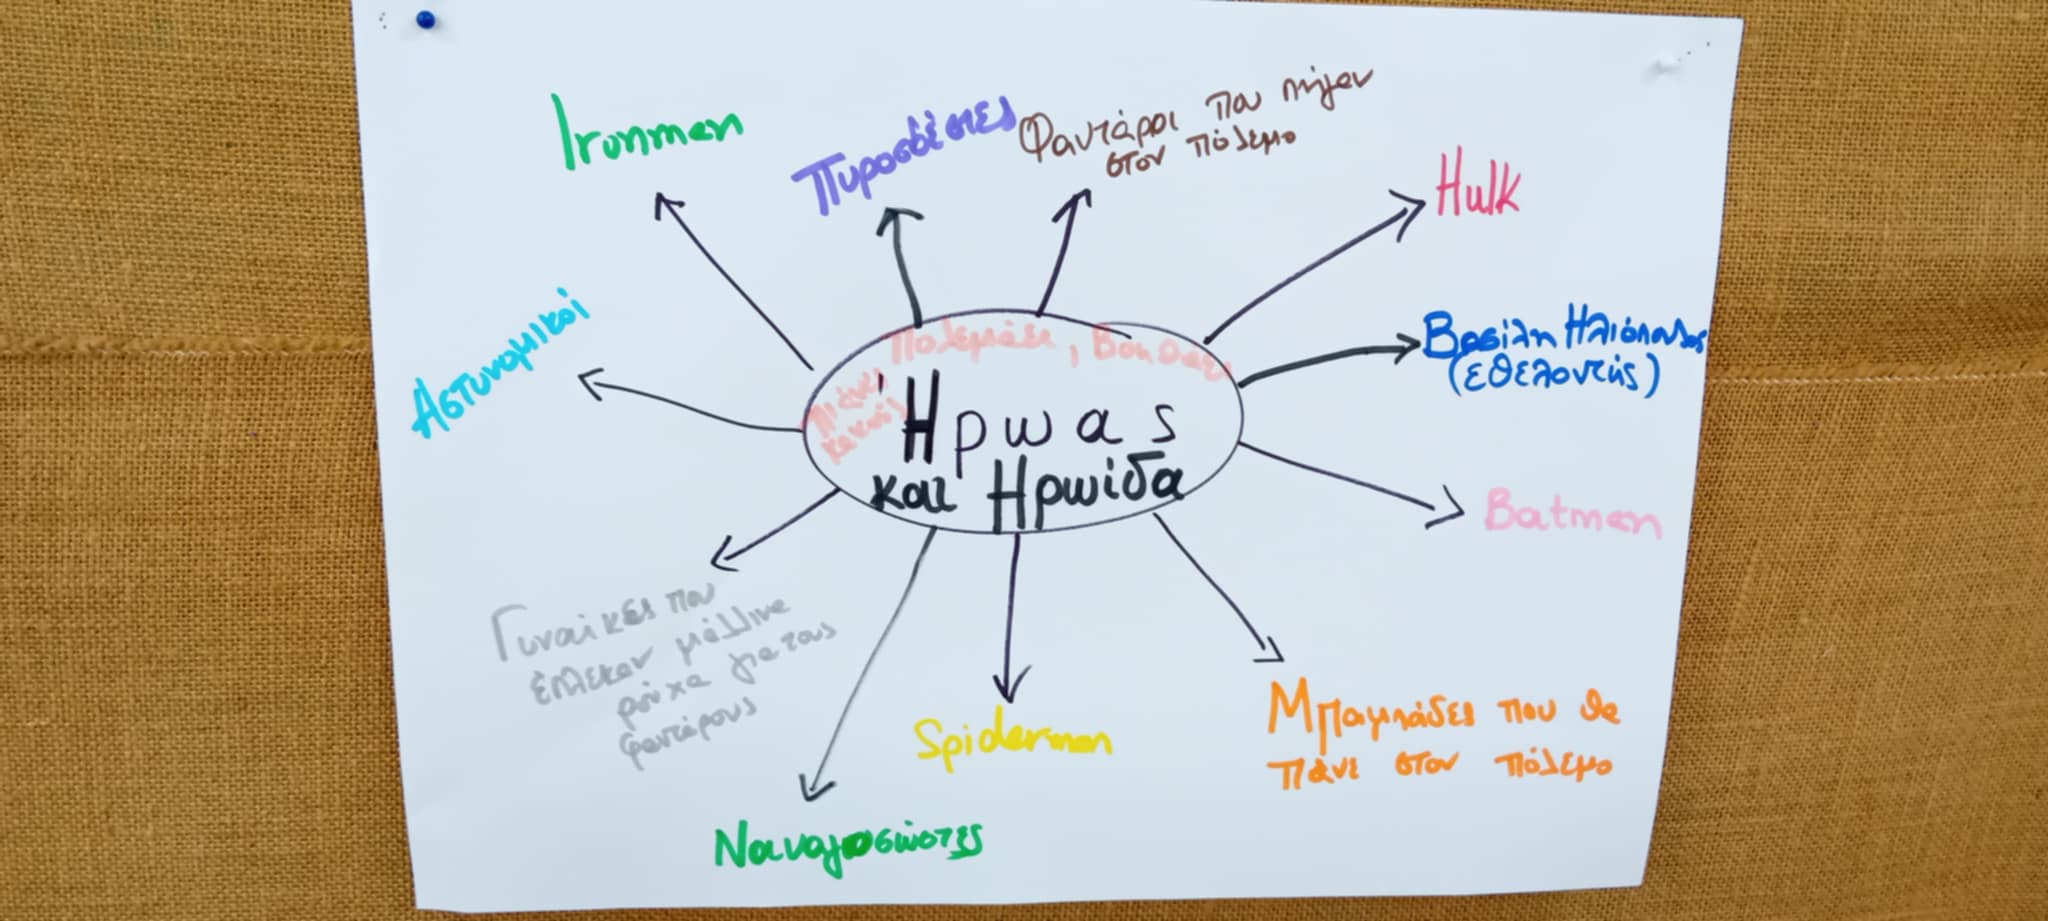 Ironman
Πυροσβέστες
Φαντάροι που πήγαν
στον πόλεμο
Hulk
Αστυνομικοί
Πολεμάει, Βοηθάει
Πιάνει
κακούς
Ήρωας
και Ηρωίδα
Βασίλη Ηλιόπουλος
(εθελοντής)
Batman
Γυναίκες που
έπλεκαν μάλλινα
ρούχα για τους
φαντάρους
Spiderman
Μπαμπάδες που θα
πάνε στον πόλεμο
Ναυαγοσώστες